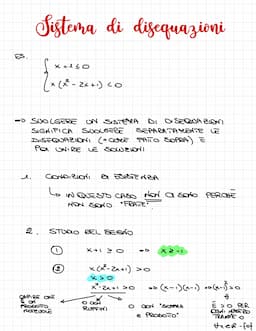 Sistema di disequazioni
ES.
x+1≤0
x(x²-2x+1)<0
→ SVOLGERE UN SISTEMA DI DISEQUAZIONI
SIGNIFICA SVOLGERE SEPARATAMENTE LE
DISEQUAZIONI (COME FATTO SOPRA) E
POI UNIRE LE SOLUZIONI
1. CONDIZIONI DI ESISTENZA
↳ IN QUESTO CASO NON CI SONO PERCHÈ
NON SONO "FRATTE"
2. STUDIO DEL SEGNO
① x+1≥0 ⇒ x≥-1
② x(x²-2x+1)>0
x>0
x²-2x+1>0 ⇒ (x-1)(x-1) ⇒ (x-1)²>0
CAPIRE CHE
È UN
PRODOTTO
NOTEVOLE
O CON
RUFFINI
O CON "SOMMA
E PRODOTTO"
È >0 PER
OGNI
TRANNE
∀x∈R-